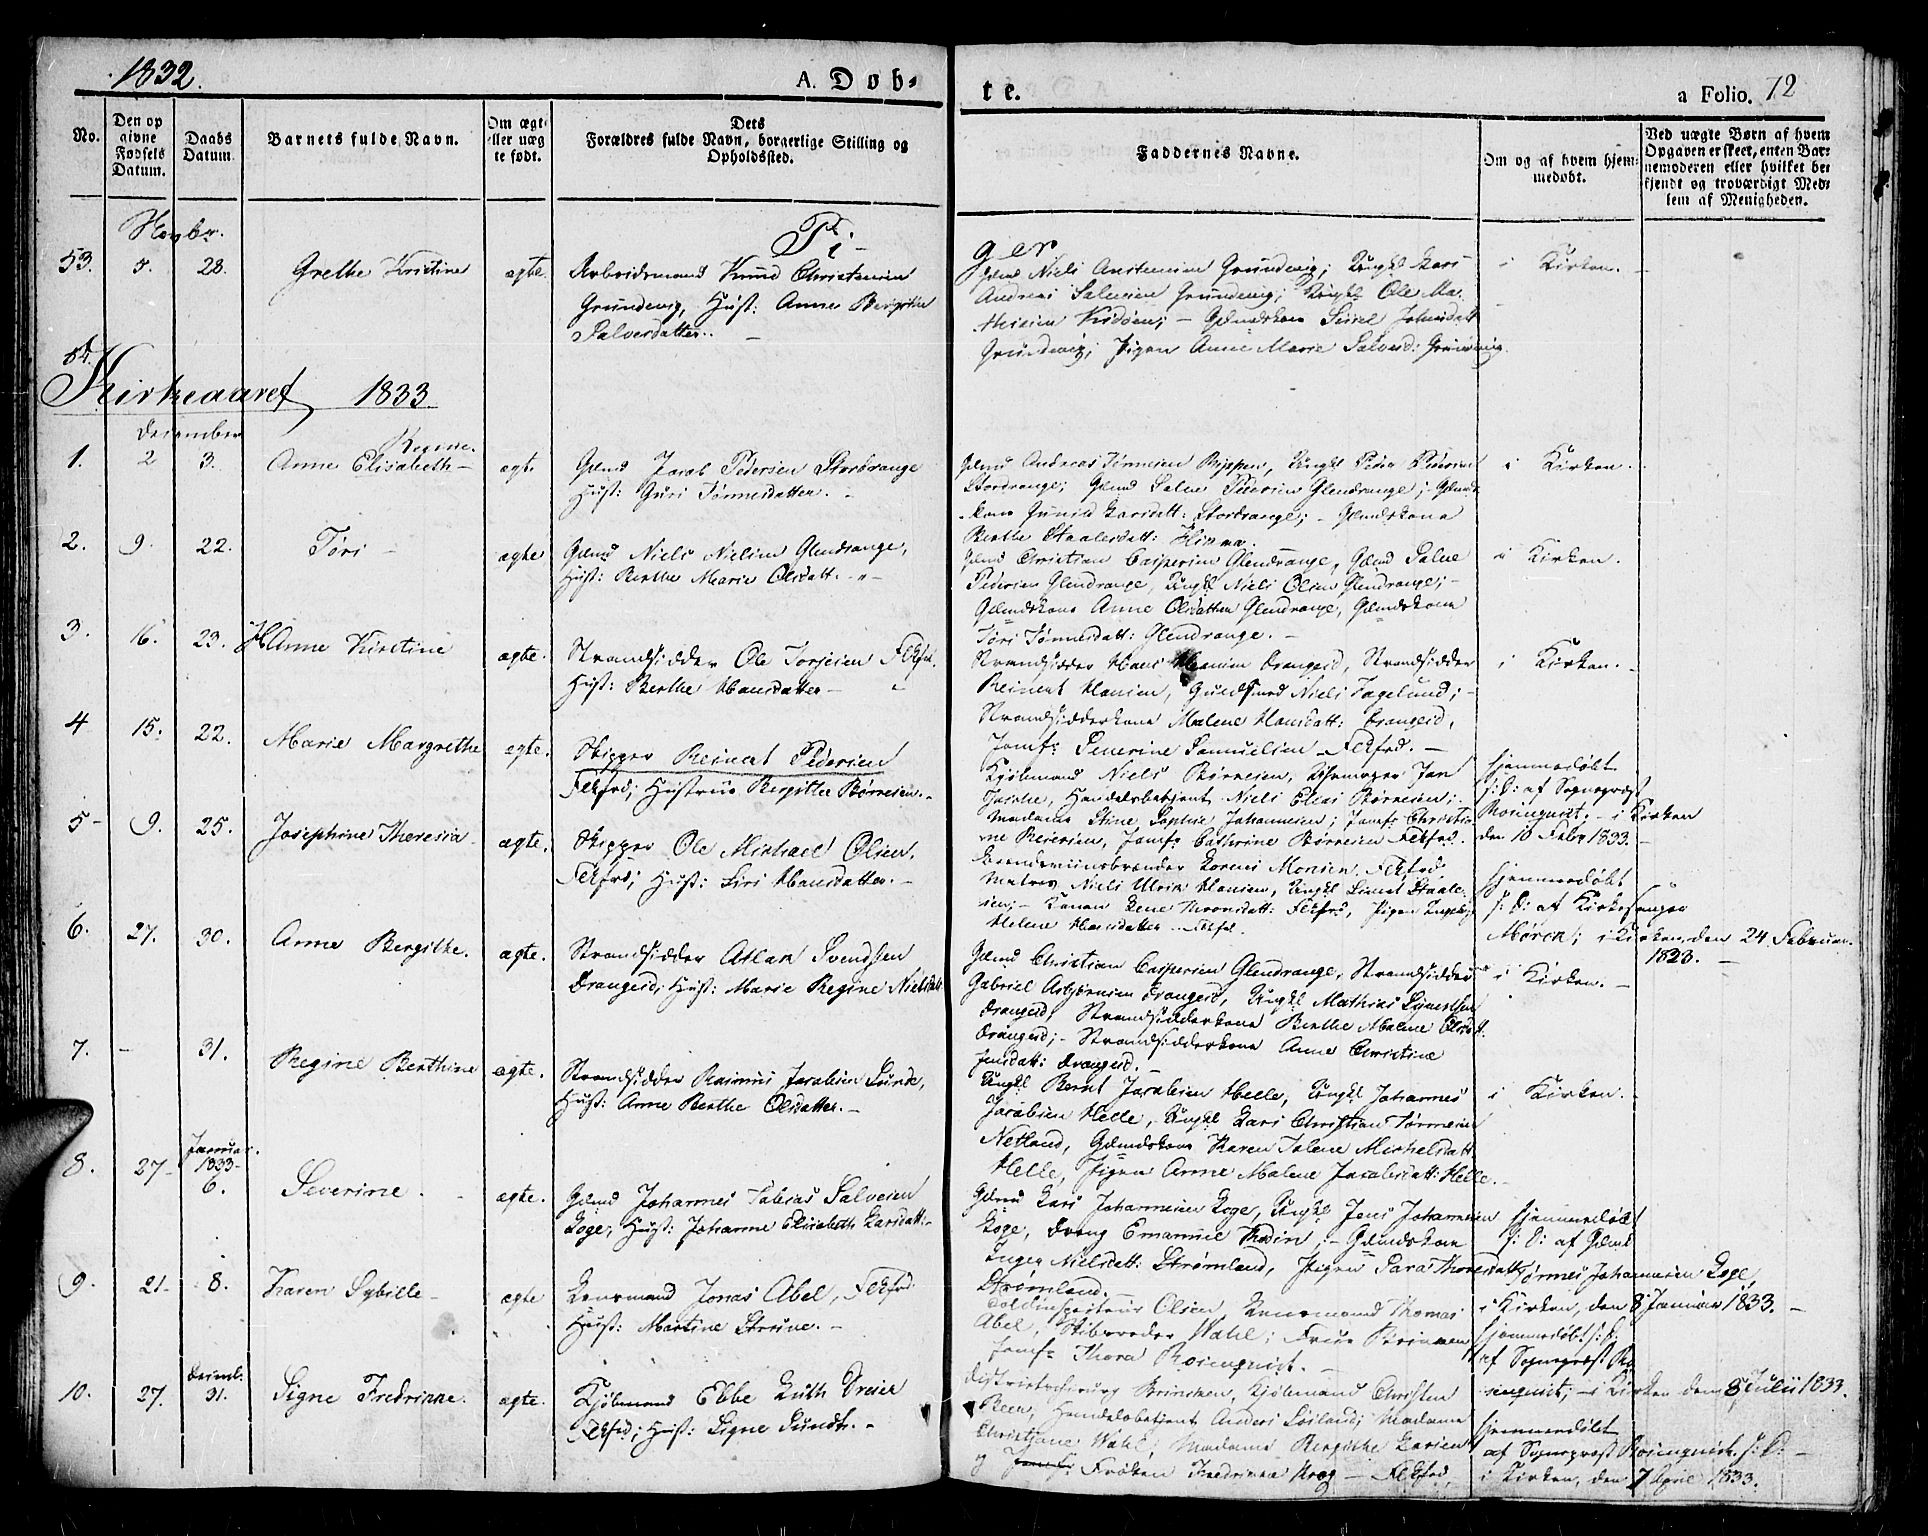 1832.
A. Døb-
te.
a Folio. 72
No.
Den op
givne
Fødsels
Datum.
Daabs
Datum.
Barnets fulde Navn.
Om ægte
eller uæg
te født.
Dets
Forældres fulde Navn, borgerlige Stilling og
Opholdssted.
Faddernes Navne.
Om og af hvem hjem-
medøbt.
Ved uægte Børn af hvem
Opgaven er skeet, enten Bar-
nemoderen eller hvilket be-
kjendt og troværdigt Med-
lem af Menigheden.
Novbr.
Pi-
ger
53. 5. 28. Grethe Kristine ægte. Arbeidsmand Knud Christensen
Grundevig, Hust: Anne Bergitte
Salvesdatter.
Gmd Niels Austensen Grundevig; Ungkl Lars
Andreas Salvesen Grundevig; Ungkl Ole Ma-
thisen Kudøen; - Gmdskone Sissel Johnsdatt
Grundevig; Pigen Anne Marie Salvesd: Grundevig.
i Kirken.
54.
Kirkeaaret 1833
December
1. 2 3. Anne Elisabeth Regine. ægte Gmd Jacob Pedersen Stordrange
Hust: Guri Tønnesdatter.
Gmd Andreas Tønnesen Bippen, Ungkl Peder Pedersen
Stordrange; Gmd Salve Pedersen Glendrange; - Gmds-
kone Gunild Larsdatt: Stordrange; - Gmdskone
Berthe Staalesdatt: Hinna.
i Kirken.
2. 9. 22. Tøri - ægte Gmd Niels Nielsen Glendrange,
Hust: Berthe Marie Olsdatt.
Gmd Christian Caspersen Glendrange, Gmd Salve
Pedersen Glendrange, Ungkl Niels Olsen Glendrange; -
Gmdskone Anne Olsdatter Glendrange, Gmdskone
Tøri Tønnesdatt: Glendrange. -
i Kirken.
3. 16. 23. Hanne Kirstine ægte. Strandsidder Ole Torjesen Fekfrd,
Hust: Berthe Hansdatter -
Strandsidder Hans Hansen Drangesd, Strandsidder
Reinert Hansen, Niels Jagelund; -
Strandsidderkone Malene Hansdatt: Drangesd,
Jomf: Severine Samuelsen Fekfrd. -
i Kirken.
4 15. 22. Marie Margrethe ægte. Skipper Reinert Pedersen
Fekfrd; Hustrue Bergitte Børresen. -
Kjøbmand Niels Børresen, Jan
Handelsbetjent Niels Elias Børresen; -
Madame Stine Sophie Johannesen; Jomf: Christi-
ne Reiersen, Jomf: Cathrine Børresen Fekfrd.
hjemmedøbt
s: D: af Sognepræst
Rosenqvist. - i Kirken
den 10 Febr 1833. -
5 9. 25. Josephine Theresia - ægte. Skipper Ole Michael Olsen,
Fekfrd; Hust: Siri Hansdatter. -
Brændeviinsbrænder Lorens Monsen, Fekfrd,
Matros Niels Ulrik Hansen, Ungkl Simet Staale-
sen; - Konen Lene Aronsdatt: Fekfrd, Pigen Ingeborg
Helene Hansdatter - Fekfrd.
hjemmedøbt
s: D: af Kirkesanger
Mørch; i Kirken, den 24 Februar.
1833. -
6. 27. 30. Anne Bergithe. ægte. Strandsidder Atlak Svendsen
Drangesd; Hust: Marie Regine Nielsdatt.
Gmd Christian Caspersen Glendrange, Strandsidder
Gabriel Asbjørnsen Drangesd, Ungkl Mathias Syvertsen
Drangesd, Strandsidderkone Berthe Malene Olsdt.
Drangesd; - Strandsidderkone Anne Christine
Jensdatt: Drangesd. -
i Kirken. -
7. - 31. Regine Berthine ægte. Strandsidder Rasmus Jacobsen Sunde,
Hust: Anne Berthe Olsdatter. -
Ungkl Bernt Jacobsen Helle, Ungkl Johannes
Jacobsen Helle, Ungkl Lars Christian Tønnesen
Netland, Gmdskone Karen Talene Michelsdatt
Helle, Pigen Anne Malene Jacobsdatt: Helle. -
i Kirken. -
Januar.
1833
8. 27- 6. Severine. ægte. Gmd Johannes Tobias Salvesen
Loge; Hust: Johanne Elisabeth Larsdatt: -
Gmd Lars Johannesen Loge, Ungkl Jens Johannesen
Loge, Dreng Emanuel Thodin; - Gmdskone
Inger Nielsdatt: Strømland, Pigen Sara Thoresdatt
Strømland.
hjemmedøbt
s: D: af Gmd
Tønnes Johannesen Loge,
i Kirken, den 8 Januar 1833. -
9. 21- 8. Karen Sybille - ægte Lensmand Jonas Abel, Fekfrd
Hust: Martine Strune. -
Toldinspecteur Olsen, Lensmand Thomas
Abel, Skibsreder Wahl; Frue Brinchen
Jomf: Thora Rosenqvist. -
hjemmedøbt s: D:
af Sognepræst Ro
senqvist; - i Kirken den 8 Julii 1833.
Decemb.
10. 27. 31. Signe Fredrikke. ægte. Kjøbmand Ebbe Luth Dreier
Fekfrd; Hust: Signe Sundt. -
Districtschirurg Brinchen, Kjøbmand Christen
Beer, Handelsbetjent Anders Losland; Madame
Christiane Wahl; Madame Bergithe Larsen
og Frøken Fredrikke Krog - Fekfrd,
hjemmedøbt
af Sognepræst Rosenqvist. s: D: -
i Kirken, den 7 April 1833.